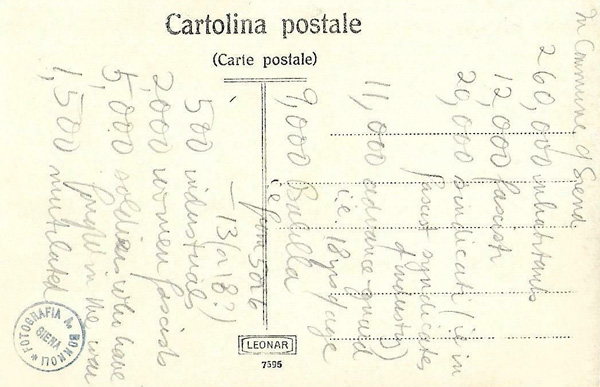 Cartolina postale
(Carte postale)
In Commune of Siena
260,000 inhabitants
12,000 fascisti
20,000 sindicati (i.e. in
fascist syndicates
of industry)
11,000 advance guard
i.e. 18 yrs of age
9,000 Balilla
i.e. from 5 or 6
– 13 (or 18?)
500 industrials
2,000 women fascists
5,000 soldiers who have
fought in the war
1,500 mutilated
FOTOGRAFIA A. BONNOLI
SIENA
LEONAR
7595